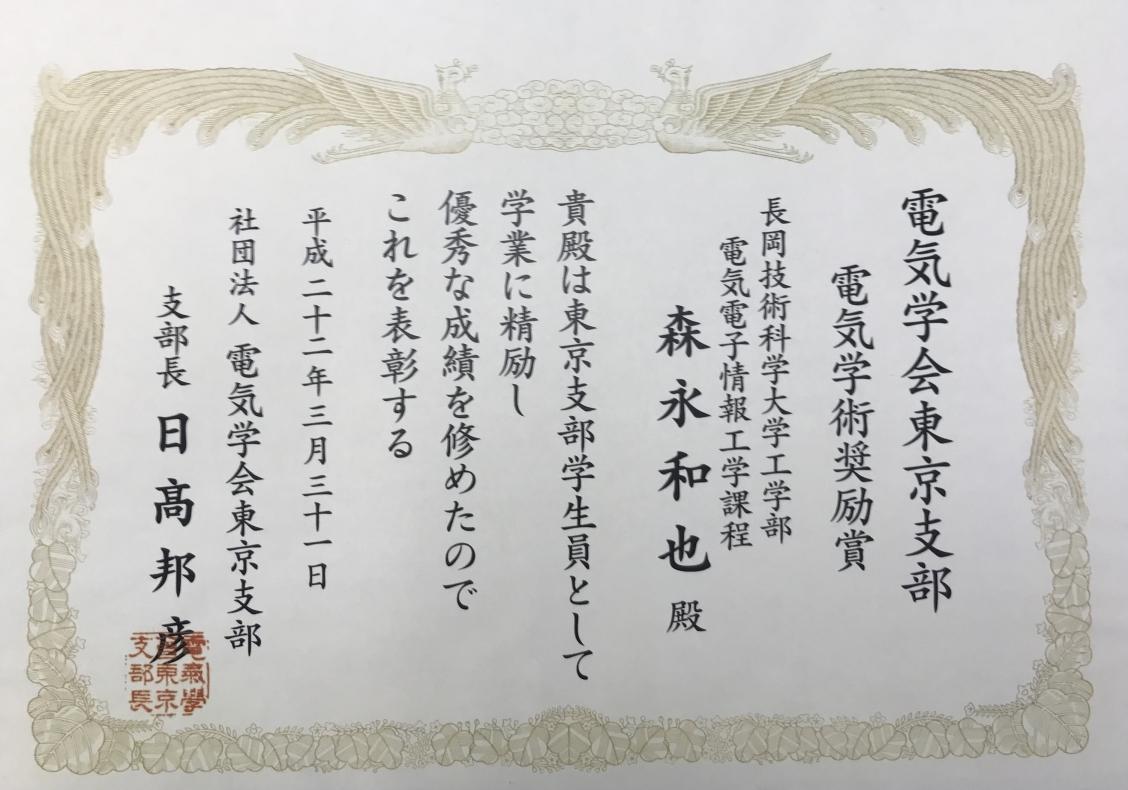 電気学会東京支部
電気学術奨励賞
長岡技術科学大学工学部
電気電子情報工学課程
森永和也 殿
貴殿は東京支部学生員として
学業に精励し
優秀な成績を修めたので
これを表彰する
平成二十二年三月三十一日
社団法人 電気学会東京支部
支部長 日髙邦彦